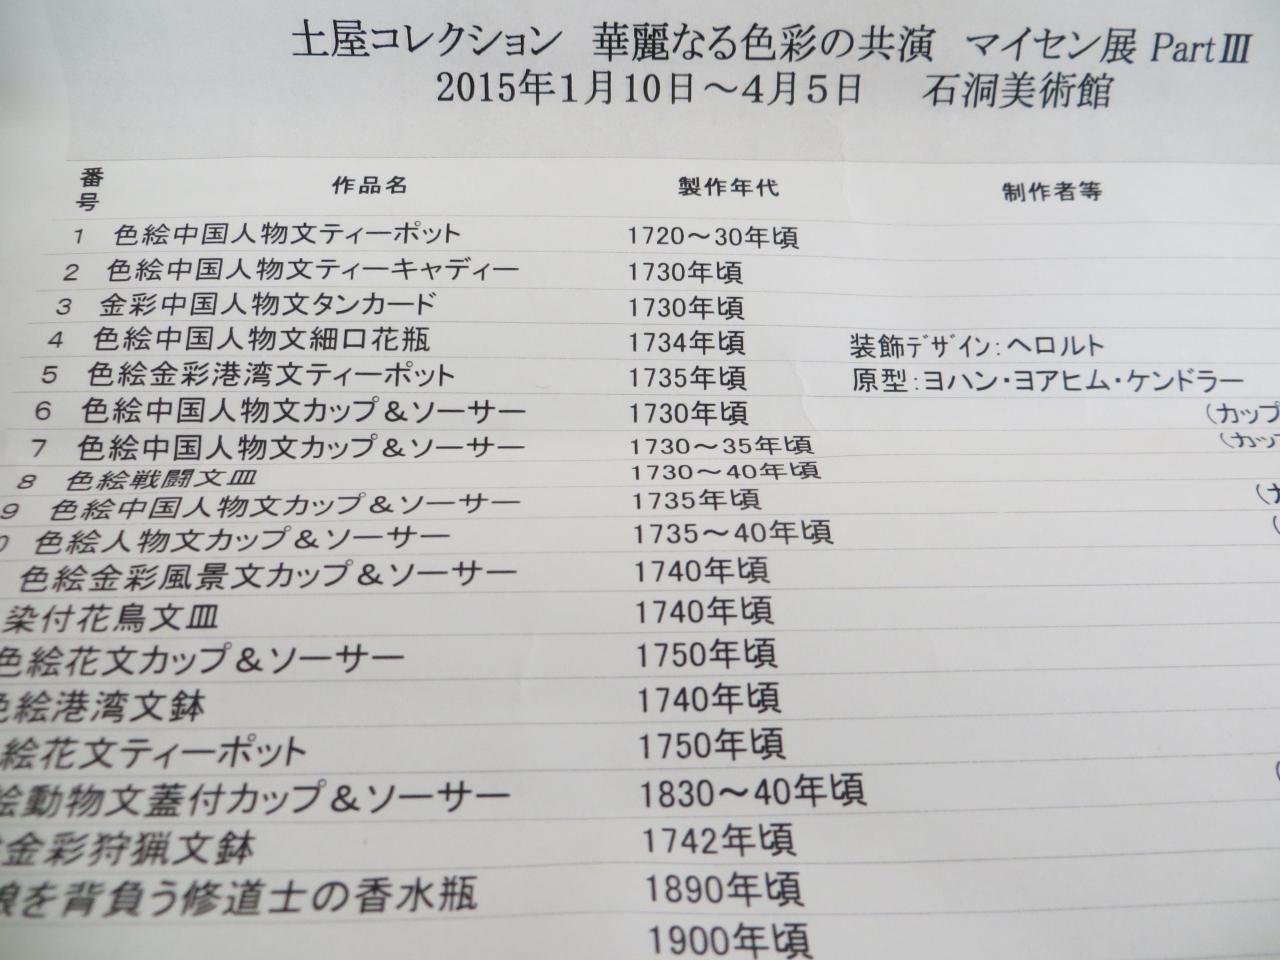 土屋コレクション 華麗なる色彩の共演 マイセン展 Part Ⅲ
2015年1月10日～4月5日 石洞美術館
番号 作品名 製作年代 制作者等
1 色絵中国人物文ティーポット 1720～30年頃
2 色絵中国人物文ティーキャディー 1730年頃
3 金彩中国人物文タンカード 1730年頃
4 色絵中国人物文細口花瓶 1734年頃 装飾ﾃﾞｻﾞイン：ヘロルト
5 色絵金彩港湾文ティーポット 1735年頃 原型：ヨハン・ヨアヒム・ケンドラー
6 色絵中国人物文カップ＆ソーサー 1730年頃 (カップ
7 色絵中国人物文カップ＆ソーサー 1730～35年頃 (カップ
8 色絵戦闘文皿 1730～40年頃
9 色絵中国人物文カップ＆ソーサー 1735年頃 (カ
0 色絵人物文カップ＆ソーサー 1735～40年頃 (
色絵金彩風景文カップ＆ソーサー 1740年頃
染付花鳥文皿 1740年頃
色絵花文カップ＆ソーサー 1750年頃
色絵港湾文鉢 1740年頃
絵花文ティーポット 1750年頃
絵動物文蓋付カップ＆ソーサー 1830～40年頃 (
金彩狩猟文鉢 1742年頃
娘を背負う修道士の香水瓶 1890年頃
1900年頃